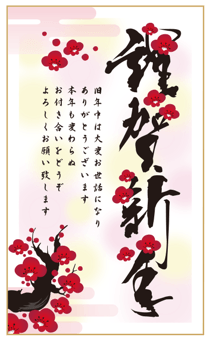 謹賀新年
旧年中は大変お世話になり
ありがとうございます
本年も変わらぬ
お付き合いをどうぞ
よろしくお願い致します